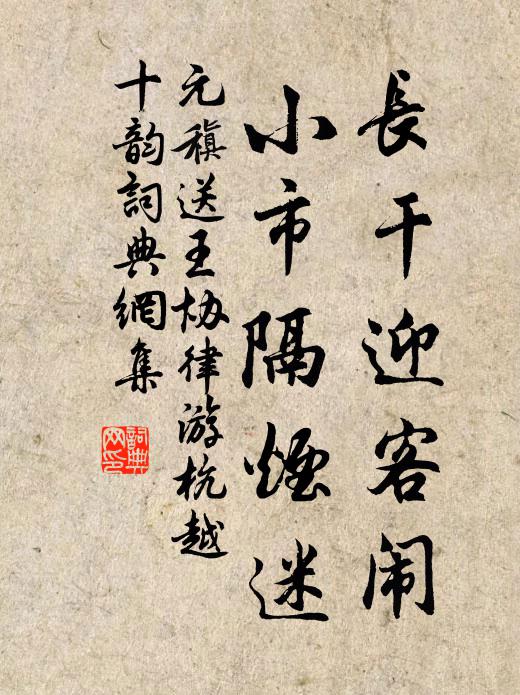 長干迎客闹
小市隔煙迷
元稹送王协律游杭越
十韵詞典網集
詞典网印